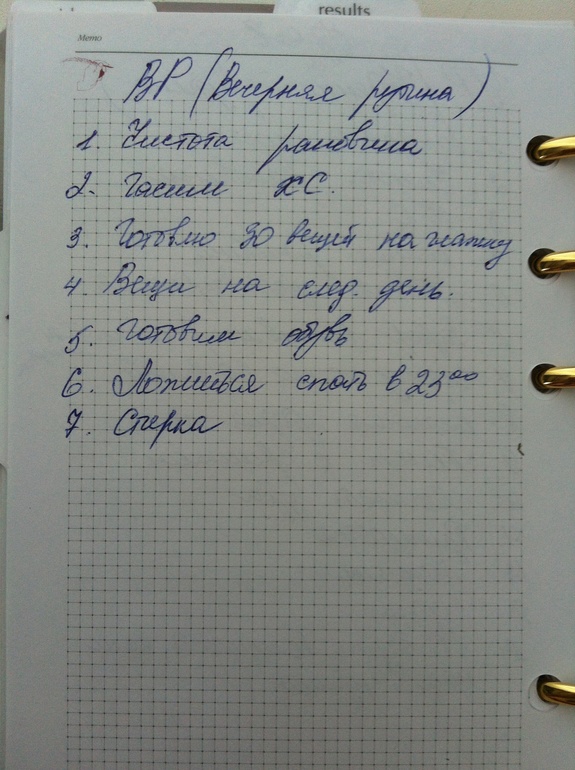 results
Memo
ВР (Вечерняя рутина)
1. Чистота раковина
2. Гасим ХС.
3. Готовлю 30 вещей на глажку
4. Вещи на след. день.
5. Готовим обувь
6. Ложиться спать в 23⁰⁰
7. Стирка